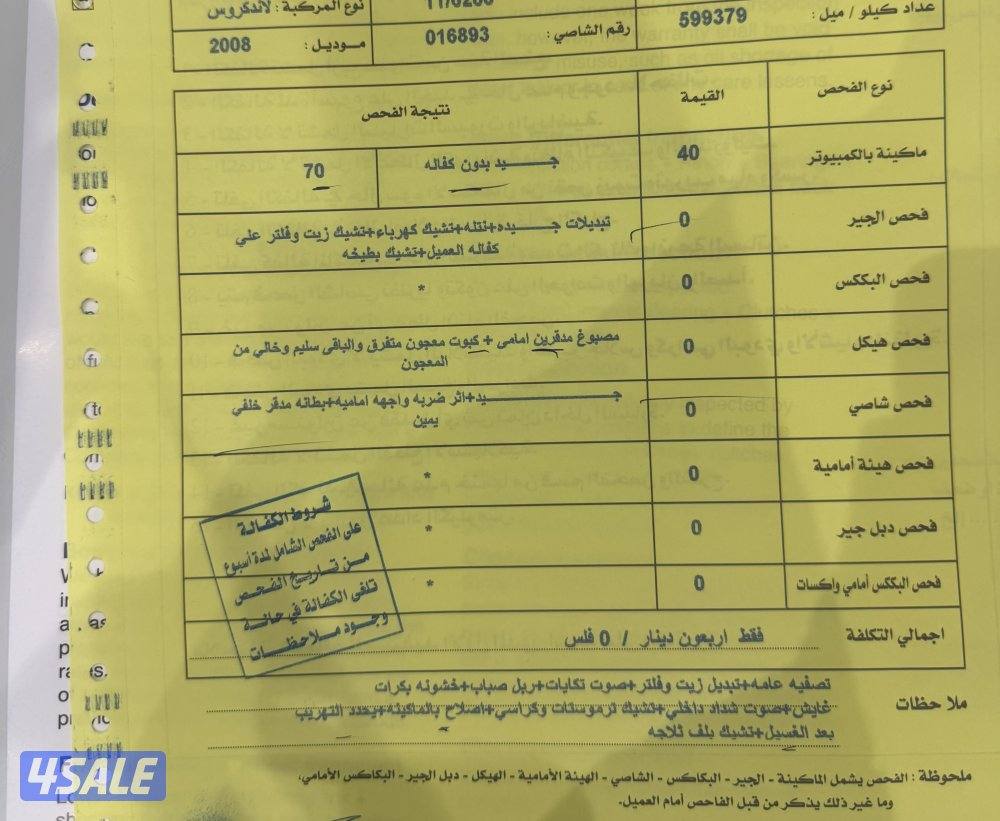 عداد كيلو / ميل : 599379
رقم الشاصي : 016893
نوع المركبة : لاندكروس
موديل : 2008
نوع الفحص القيمة نتيجة الفحص
ماكينة بالكمبيوتر 40 جـــــــيد بدون كفاله 70
فحص الجير 0 تبديلات جـــــــيده+نتله+تشيك كهرباء+تشيك زيت وفلتر علي
كفاله العميل+تشيك بطيخه
فحص البككس 0 *
فحص هيكل 0 مصبوغ مدقرين امامى + كبوت معجون متفرق والباقى سليم وخالي من
المعجون
فحص شاصي 0 جــــــــــــــيد+اثر ضربه واجهه اماميه+بطانه مدقر خلفي
يمين
فحص هيئة أمامية 0 *
فحص دبل جير 0 *
فحص البككس أمامي واكسات 0 *
اجمالي التكلفة فقط اربعون دينار / 0 فلس
شروط الكفالة
على الفحص الشامل لمدة أسبوع
من تاريخ الفحص
تلغى الكفالة في حالة
وجود ملاحظات
ملاحظات تصفيه عامه+تبديل زيت وفلتر+صوت تكايات+ربل صباب+خشونه بكرات
غايش+صوت شداد داخلي+تشيك ترموستات وكراسي+اصلاح بالماكينه+يحدد التهريب
بعد الغسيل+تشيك بلف ثلاجه
ملحوظة : الفحص يشمل الماكينة - الجير - البكاكس - الشاصي - الهيئة الأمامية - الهيكل - دبل الجير - البكاكس الأمامي.
وما غير ذلك يذكر من قبل الفاحص أمام العميل.
4SALE